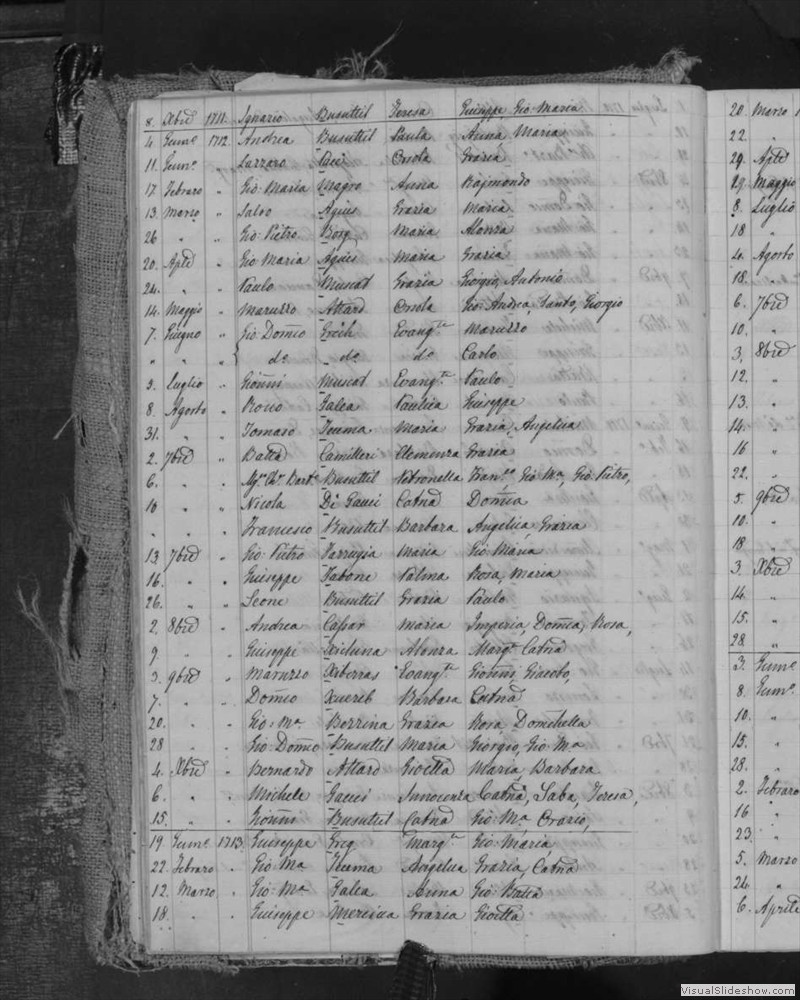 8. Xbre 1711. Ignazio Busuttil Teresa Giuseppe Gio Maria
4 Genn.o 1712. Andrea Busuttil Paula Anna Maria
11. Genn.o Lazzaro Gauci Orsola Grazia
17 Febraro " Gio: Maria Magro Anna Rajmondo
13. Marzo " Salvo Agius Grazia Maria
26 " " Gio: Pietro Borg Maria Alonza
20. Aple " Gio Maria Agius Maria Grazia
24. " " Paulo Muscat Grazia Giorgio, Antonio
14. Maggio " Maruzzo Attard Orsola Gio: Andrea, Santo, Giorgio
7. Giugno " Gio Domco Grech Evangta Maruzzo
" " " do do do Carlo
3. Luglio " Gionni Muscat Evangta Paulo
8. Agosto " Rocco Galea Paulica Giuseppe
31. " " Tomaso Teuma Maria Grazia, Angelica
2. 7bre " Batta Camilleri Clemenza Grazia
6. " " Busuttil Petronella Franco, Gio Ma, Gio: Pietro,
10 " " Nicola Di Gauci Catna Domca
" " Francesco Busuttil Barbara Angelica, Grazia
13 7bre " Gio: Pietro Farrugia Maria Gio Maria
16. " " Giuseppe Fabone Palma Rosa, Maria
26. " " Leone Busuttil Grazia Paulo
2. 8bre " Andrea Cassar Maria Imperia, Domca, Rosa,
9. " Giuseppe Xicluna Alonza Margta Catna
3. 9bre " Maruzzo Xiberras Evangta Gionni, Giacobo,
7. " " Domco Xuereb Barbara Catna
20. " " Gio: Ma Bezzina Grazia Rosa, Domchella
28 " " Gio: Domco Busuttil Maria Giorgio, Gio: Ma
4. Xbre " Bernardo Attard Gioetta Maria, Barbara
6. " " Michele Gauci Innocenza Catna, Saba, Teresa,
15. " " Gionni Busuttil Catna Gio: Ma Orazio,
19 Genno 1713. Giuseppe Greg Margta Gio: Maria
22. Febraro " Gio: Ma Teuma Angelica Grazia, Catna
12. Marzo " Gio: Ma Galea Anna Gio: Batta
18. " " Giuseppe Mercieca Grazia Gioetta
20. Marzo
22. "
29. Aple
29. Maggio
8. Luglio
18 "
4. Agosto
18. "
6. 7bre
10. "
3. 8bre
12. "
13. "
14. "
16 "
22. "
5. 9bre
10. "
18 "
3. Xbre
14. "
15. "
28. "
3. Genno
8. Genno
10. "
15. "
28. "
2. Febraro
16 "
23. "
5. Marzo
24. "
6. Aprile
VisualSlideshow.com